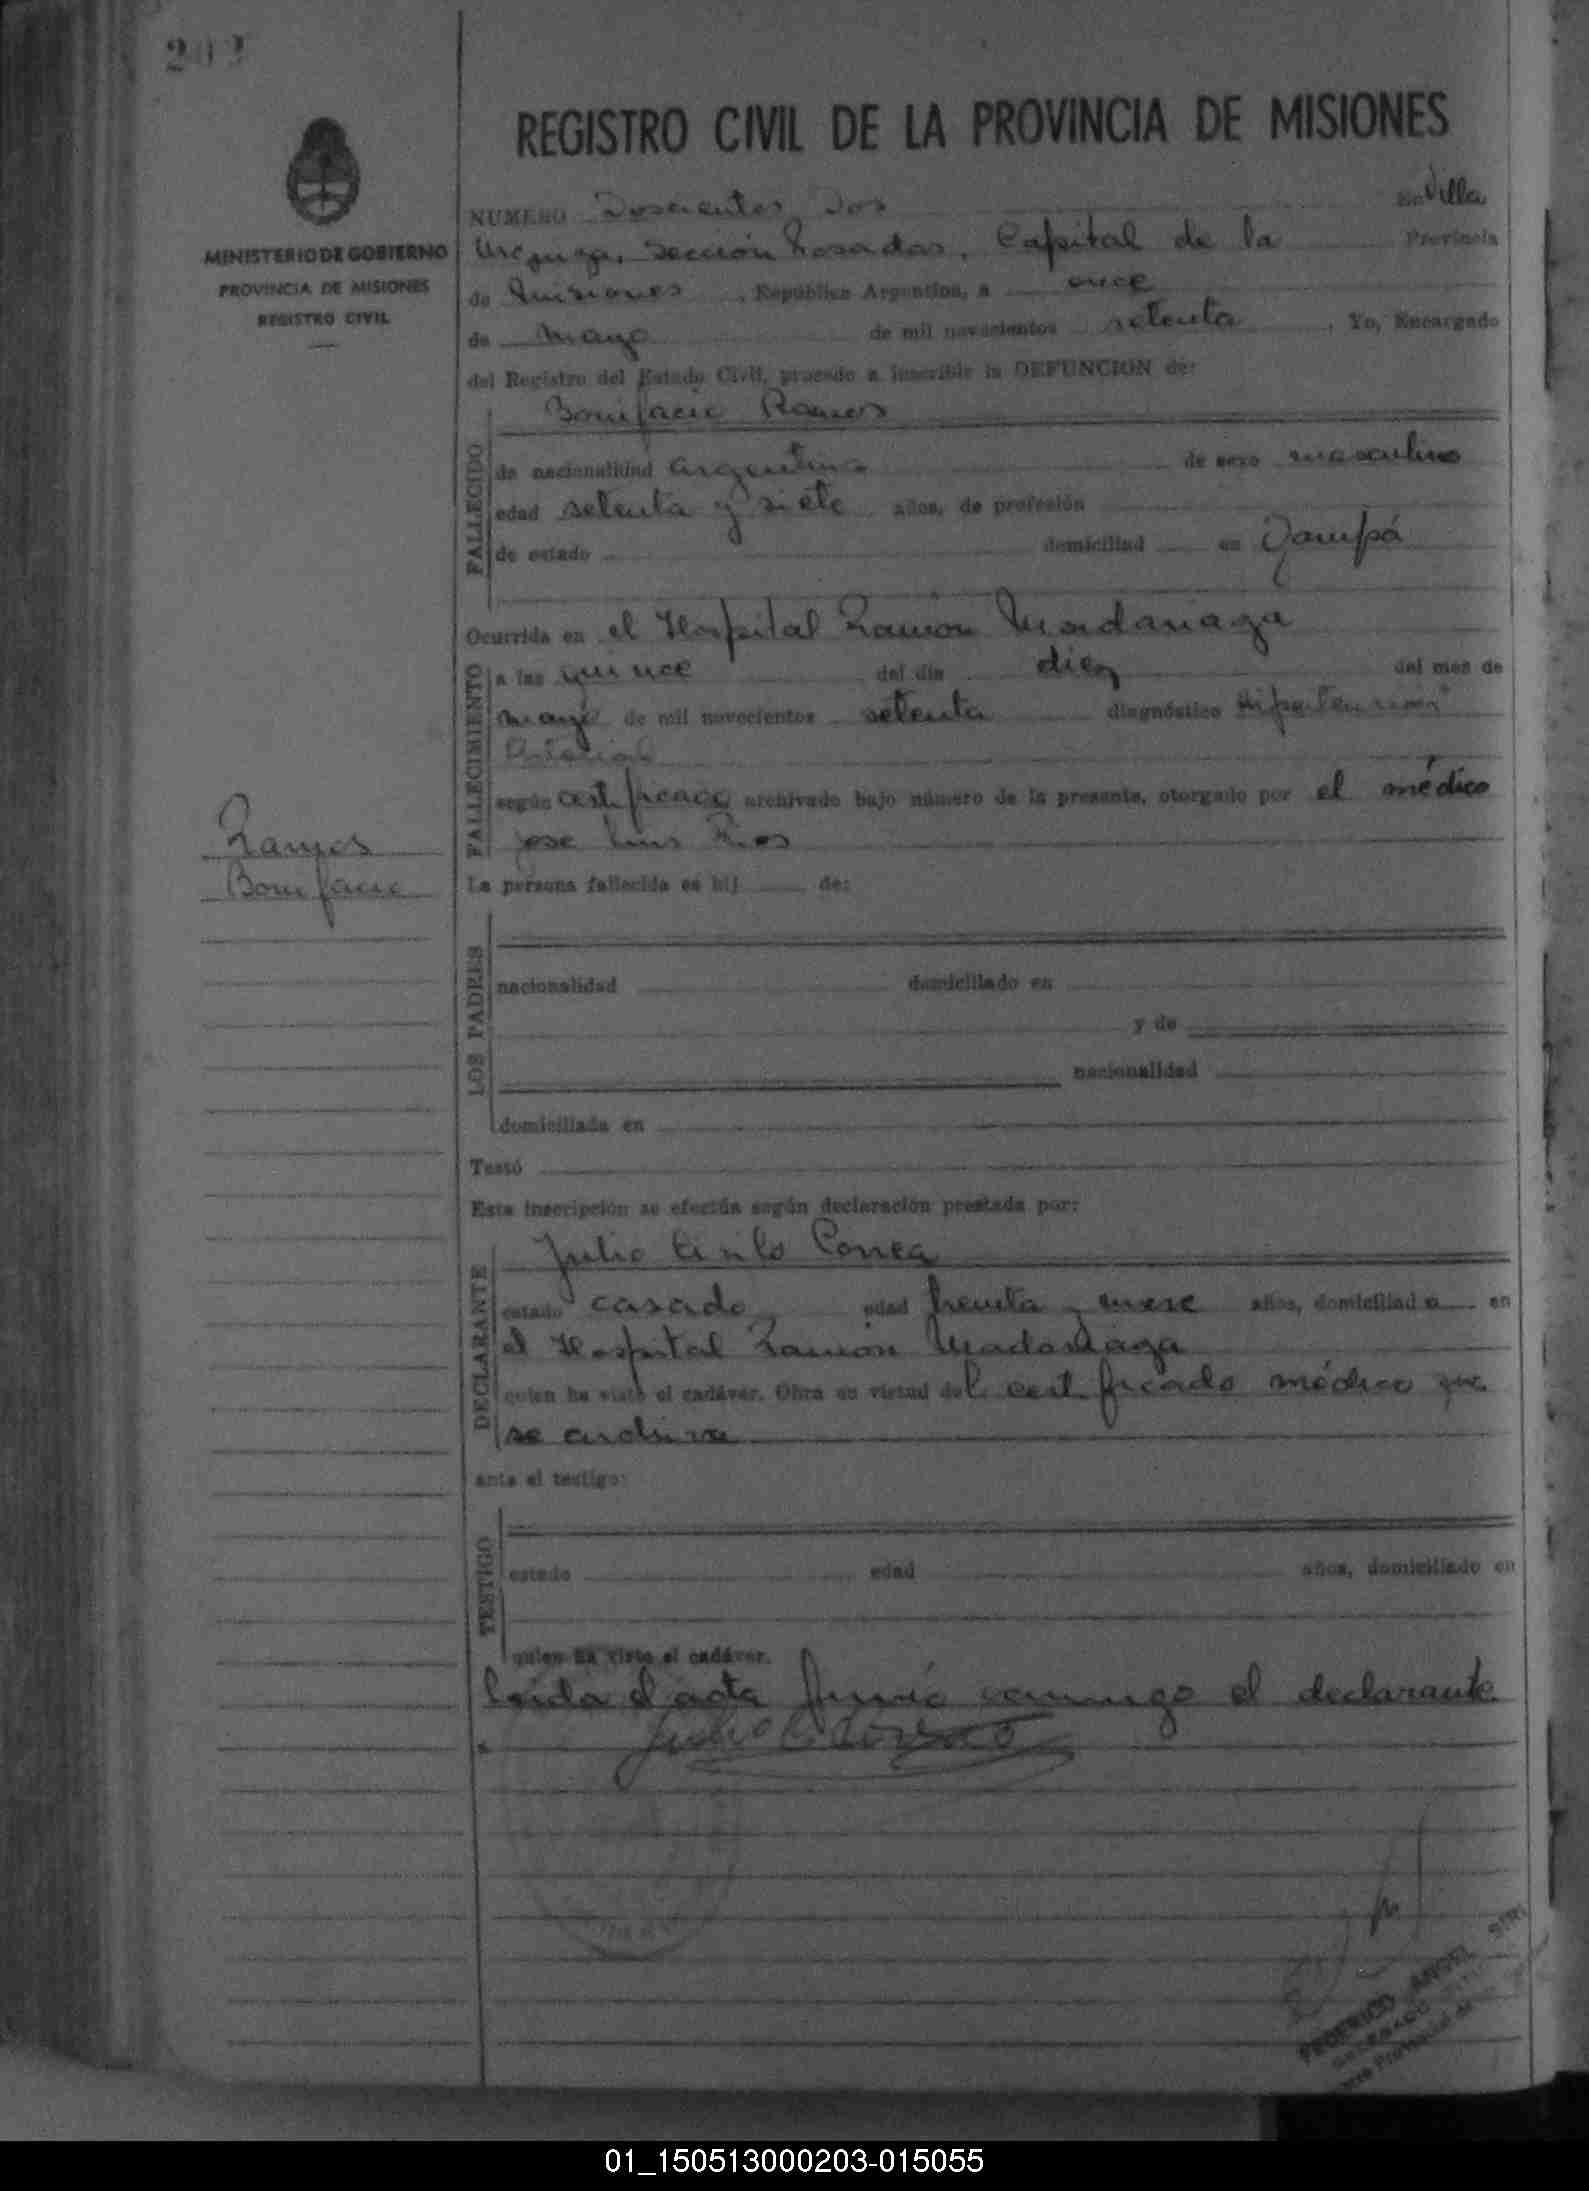 202
REGISTRO CIVIL DE LA PROVINCIA DE MISIONES
MINISTERIO DE GOBIERNO
PROVINCIA DE MISIONES
REGISTRO CIVIL
NUMERO Doscientos Dos En Villa
Urquiza, Sección Posadas, Capital de la Provincia
de Misiones, República Argentina, a once
de mayo de mil novecientos setenta, Yo, Encargado
del Registro del Estado Civil, procedo a inscribir la DEFUNCION de:
Bonifacio Ramos
FALLECIDO
de nacionalidad argentina de sexo masculino
edad setenta y siete años, de profesión
de estado domiciliad en
Ocurrida en el Hospital Ramón Madariaga
FALLECIMIENTO
a las quince del día diez del mes de
mayo de mil novecientos setenta diagnóstico Hipertensión
Arterial
según certificado archivado bajo número de la presente, otorgado por el médico
jose Luis Rios
Ramos
Bonifacio
La persona fallecida es hij de:
LOS PADRES
nacionalidad domiciliado en
y de
nacionalidad
domiciliada en
Testó
Esta inscripción se efectúa según declaración prestada por:
DECLARANTE
Julio Correa
estado casado edad treinta y nueve años, domiciliad o en
el Hospital Ramón Madariaga
quien ha visto el cadáver. Obra en virtud del certificado médico que
se archiva
ante el testigo:
TESTIGO
estado edad años, domiciliado en
quien ha visto el cadáver.
Leída el acta firmó conmigo el declarante
FEDERICO ANGEL
01_150513000203-015055